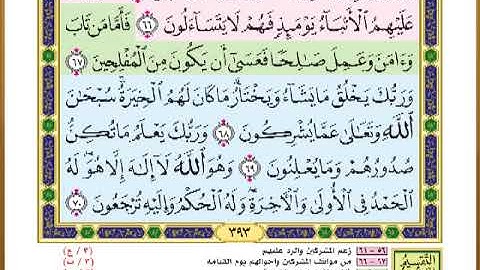 عَلَيْهِمُ الْأَنۢبَآءُ يَوْمَئِذٍ فَهُمْ لَا يَتَسَآءَلُونَ ٦٦ فَأَمَّا مَن تَابَ
وَءَامَنَ وَعَمِلَ صَٰلِحًا فَعَسَىٰٓ أَن يَكُونَ مِنَ الْمُفْلِحِينَ ٦٧
وَرَبُّكَ يَخْلُقُ مَا يَشَآءُ وَيَخْتَارُ مَا كَانَ لَهُمُ الْخِيَرَةُ سُبْحَٰنَ
اللَّهِ وَتَعَٰلَىٰ عَمَّا يُشْرِكُونَ ٦٨ وَرَبُّكَ يَعْلَمُ مَا تُكِنُّ
صُدُورُهُمْ وَمَا يُعْلِنُونَ ٦٩ وَهُوَ اللَّهُ لَآ إِلَٰهَ إِلَّا هُوَ لَهُ
الْحَمْدُ فِي الْأُولَىٰ وَالْآخِرَةِ وَلَهُ الْحُكْمُ وَإِلَيْهِ تُرْجَعُونَ ٧٠
٣٩٣
٥٦ – ٦١ زعم المشركين والرد عليهم
٦٢ – ٦٧ من مواقف المشركين وأحوالهم يوم القيامة